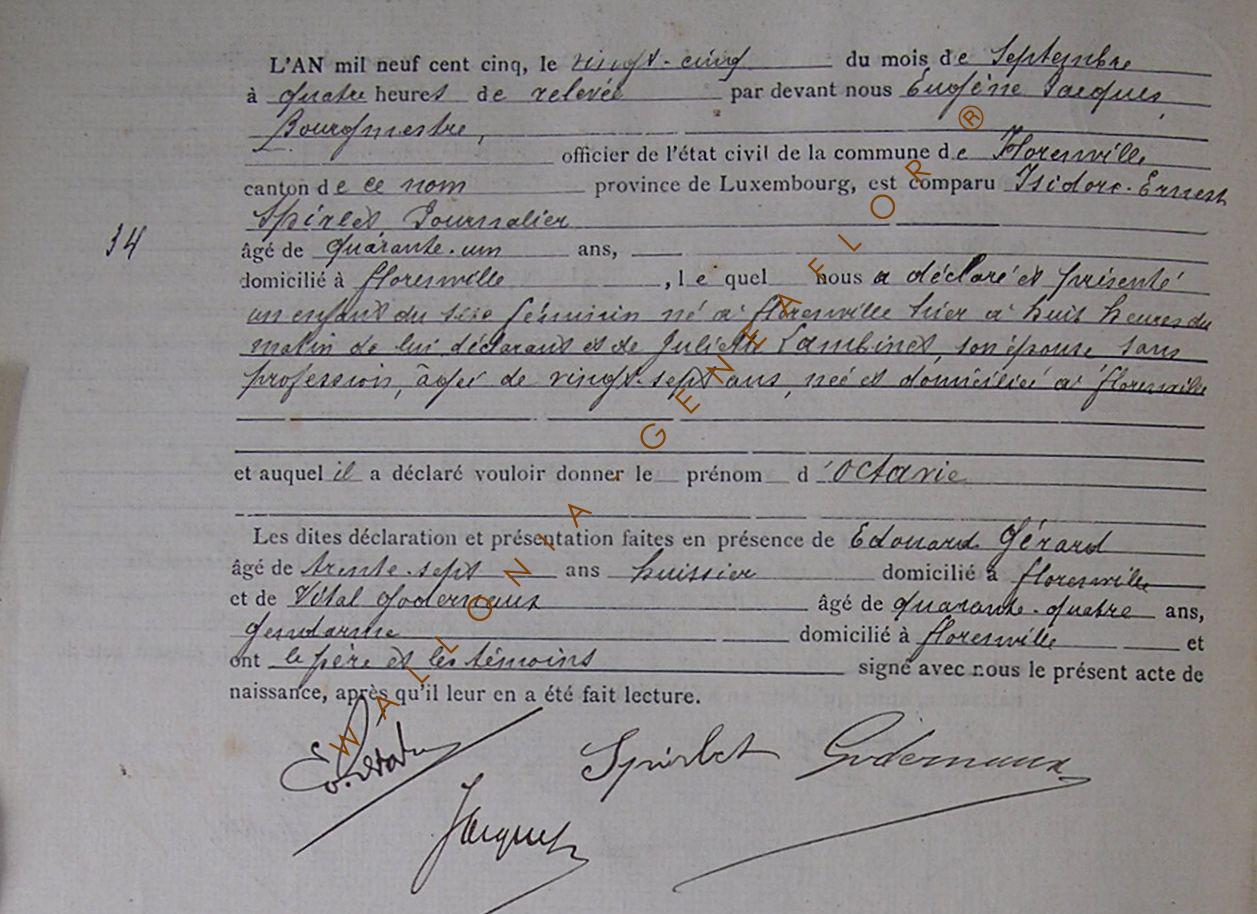 L'AN mil neuf cent cinq, le vingt-cinq du mois de Septembre
à quatre heures de relevée par devant nous Eugène Jacques,
Bourgmestre,
officier de l'état civil de la commune de Florenville
canton de ce nom province de Luxembourg, est comparu Isidore-Ernest
Spirlet Journalier
34
âgé de quarante-un ans,
domicilié à florenville, le quel nous a déclaré et présenté
un enfant du sexe féminin né à florenville hier à huit heures du
matin de lui déclarant et de Juliette Lambinet, son épouse sans
profession, âgée de vingt-sept ans, née et domiciliée à florenville
et auquel il a déclaré vouloir donner le prénom d'Octavie
Les dites déclaration et présentation faites en présence de Edouard Gérard
âgé de trente-sept ans huissier domicilié à florenville
et de Vital Godernaux âgé de quarante-quatre ans,
Gendarme domicilié à florenville et
ont le père et les témoins signé avec nous le présent acte de
naissance, après qu'il leur en a été fait lecture.
Spirlet Godernaux
Jacques
WALLONIA GENEAFLOR ®